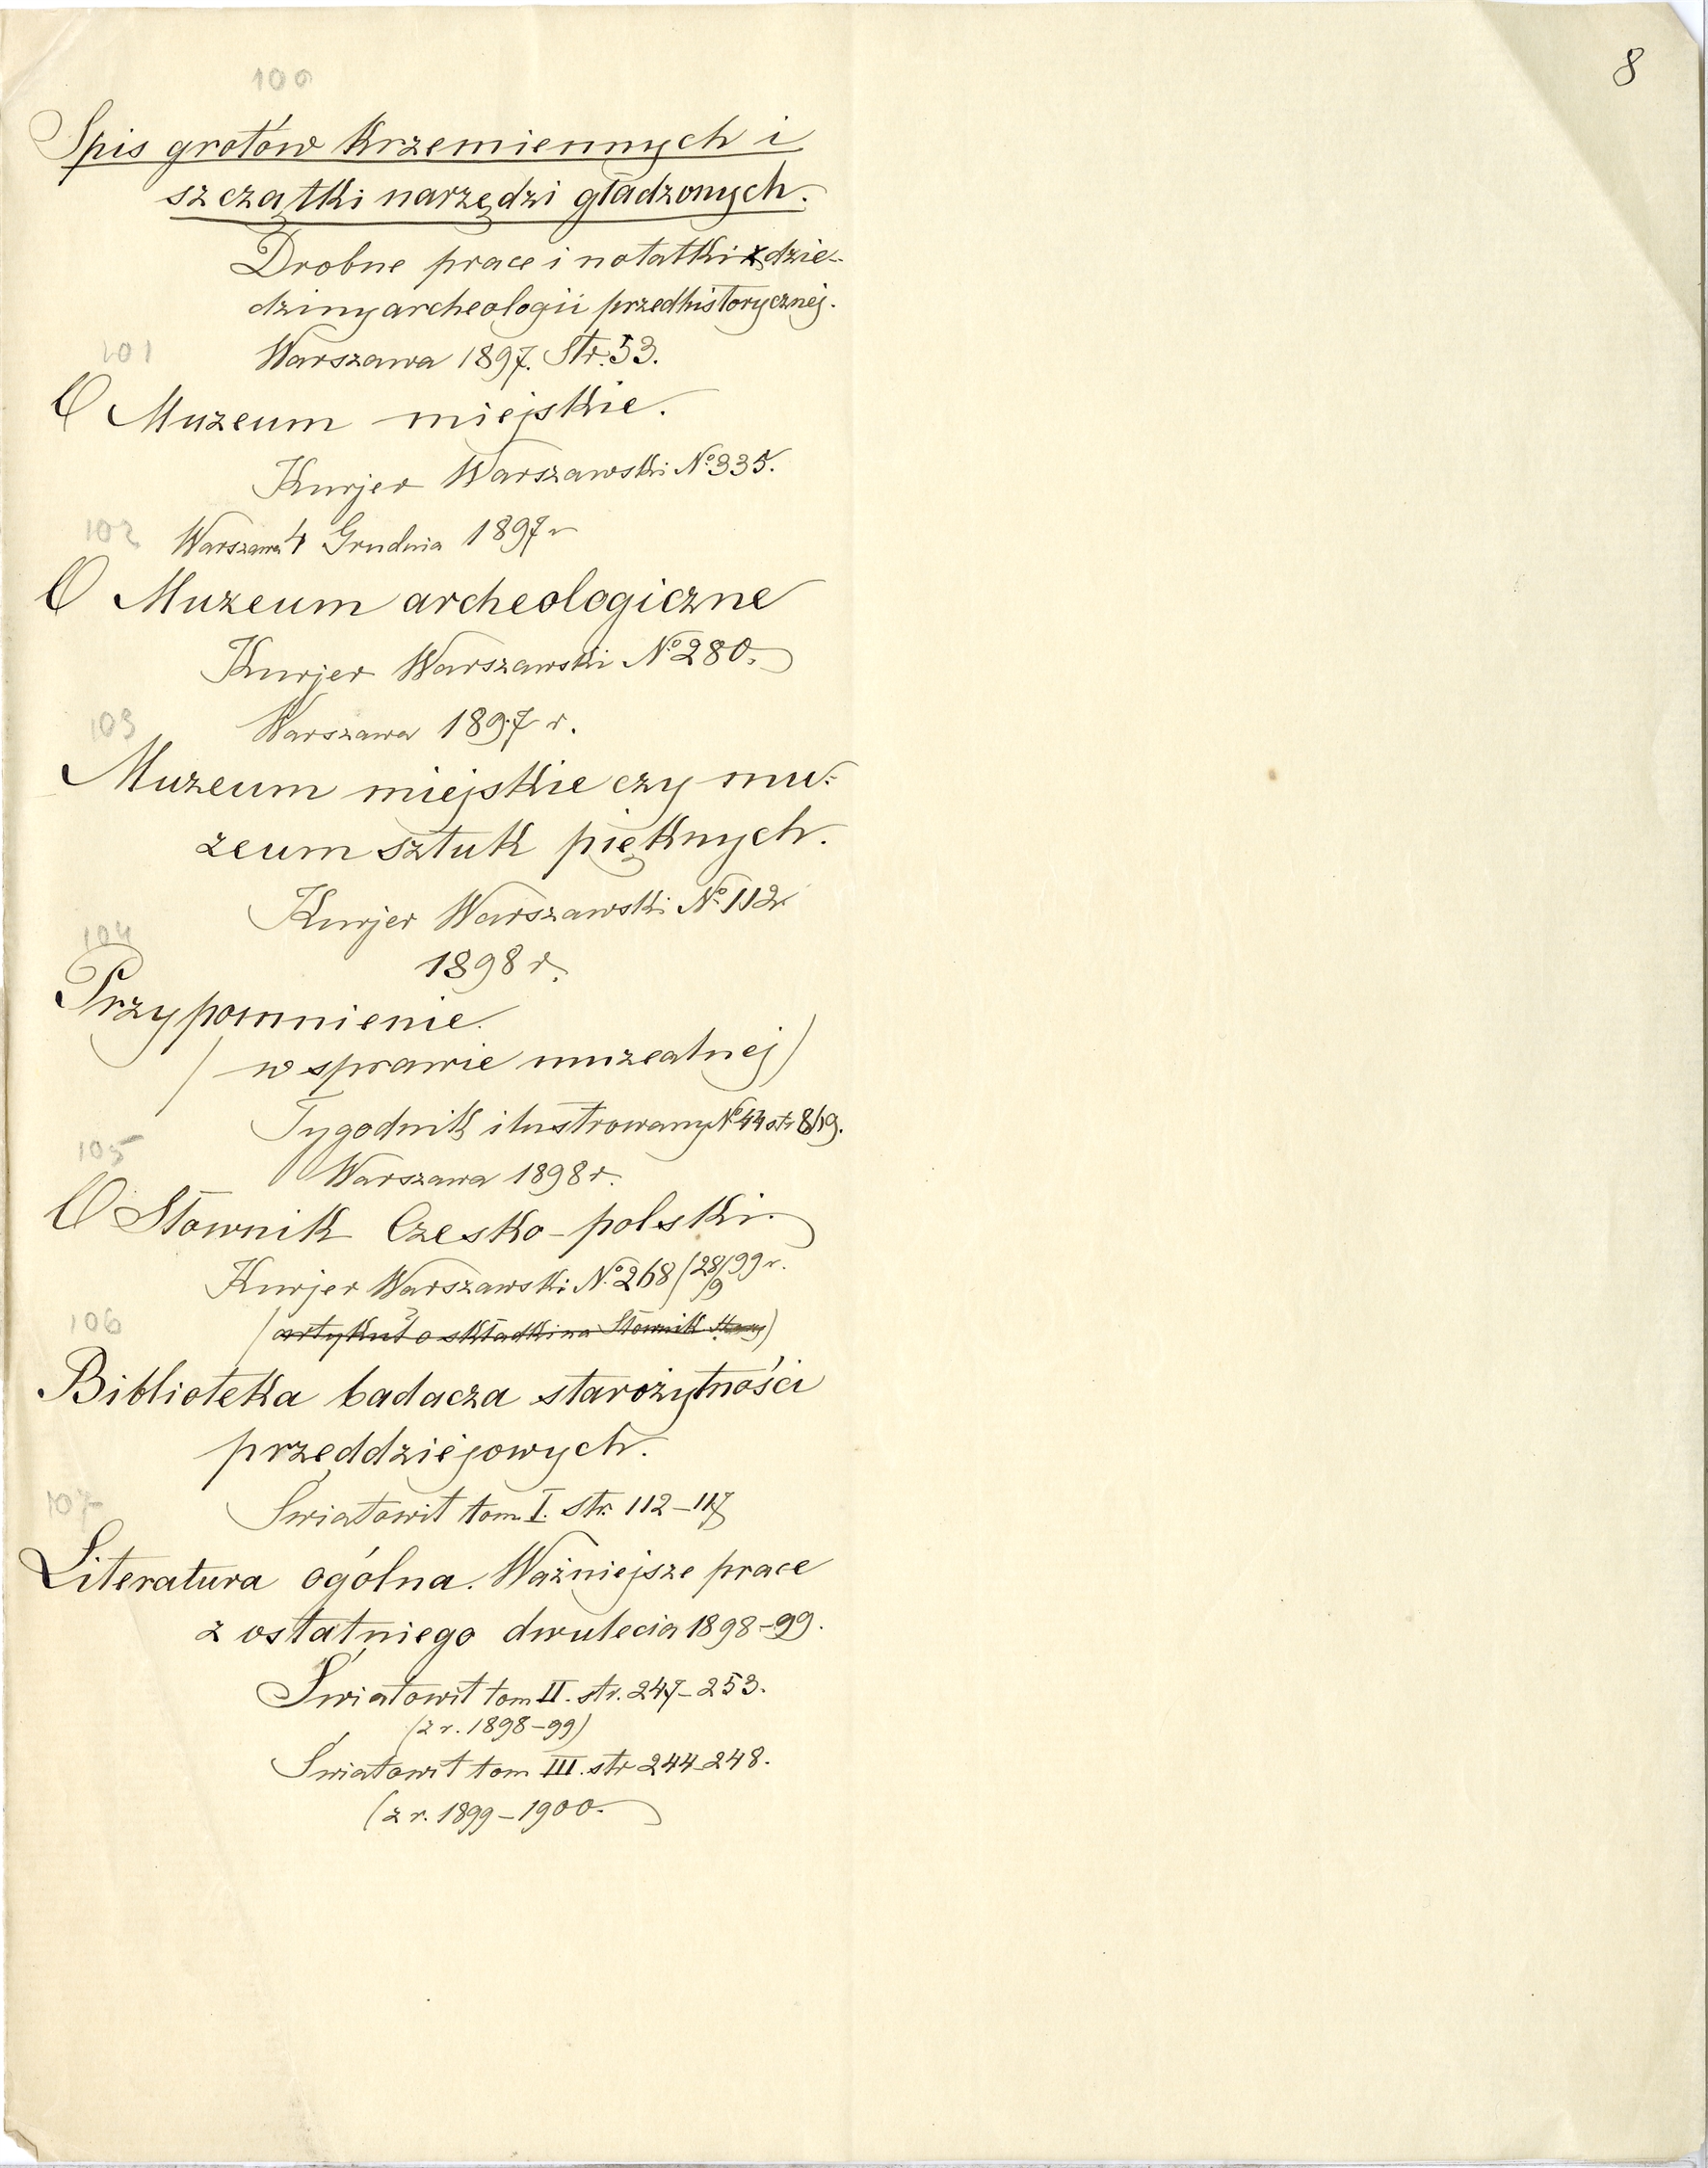 8
100
Spis grotów krzemiennych i
szczątki narzędzi gładzonych.
Drobne prace i notatki z dzie-
dziny archeologii przedhistorycznej.
Warszawa 1897. Str. 53.
101
O Muzeum miejskie.
Kurjer Warszawski No 335.
102 Warszawa 4 Grudnia 1897 r
O Muzeum archeologiczne
Kurjer Warszawski No 280.
103
Warszawa 1897 r.
Muzeum miejskie czy mu-
zeum sztuk pięknych.
Kurjer Warszawski No 112
104
1898 r.
Przypomnienie.
(w sprawie muzealnej)
Tygodnik ilustrowany No 44 str
105
Warszawa 1898 r.
O Słownik Czesko-polski.
Kurjer Warszawski No 268 (28/9 99 r.
106
(artykuł o składki na Słownik
Biblioteka badacza starożytności
przeddziejowych.
107
Swiatowit tom I. str. 112-117
Literatura ogólna. Ważniejsze prace
z ostatniego dwulecia 1898-99.
Światowit tom II. str. 247-253.
(z r. 1898-99)
Swiatowit tom III. str 244-248.
(z r. 1899-1900.)